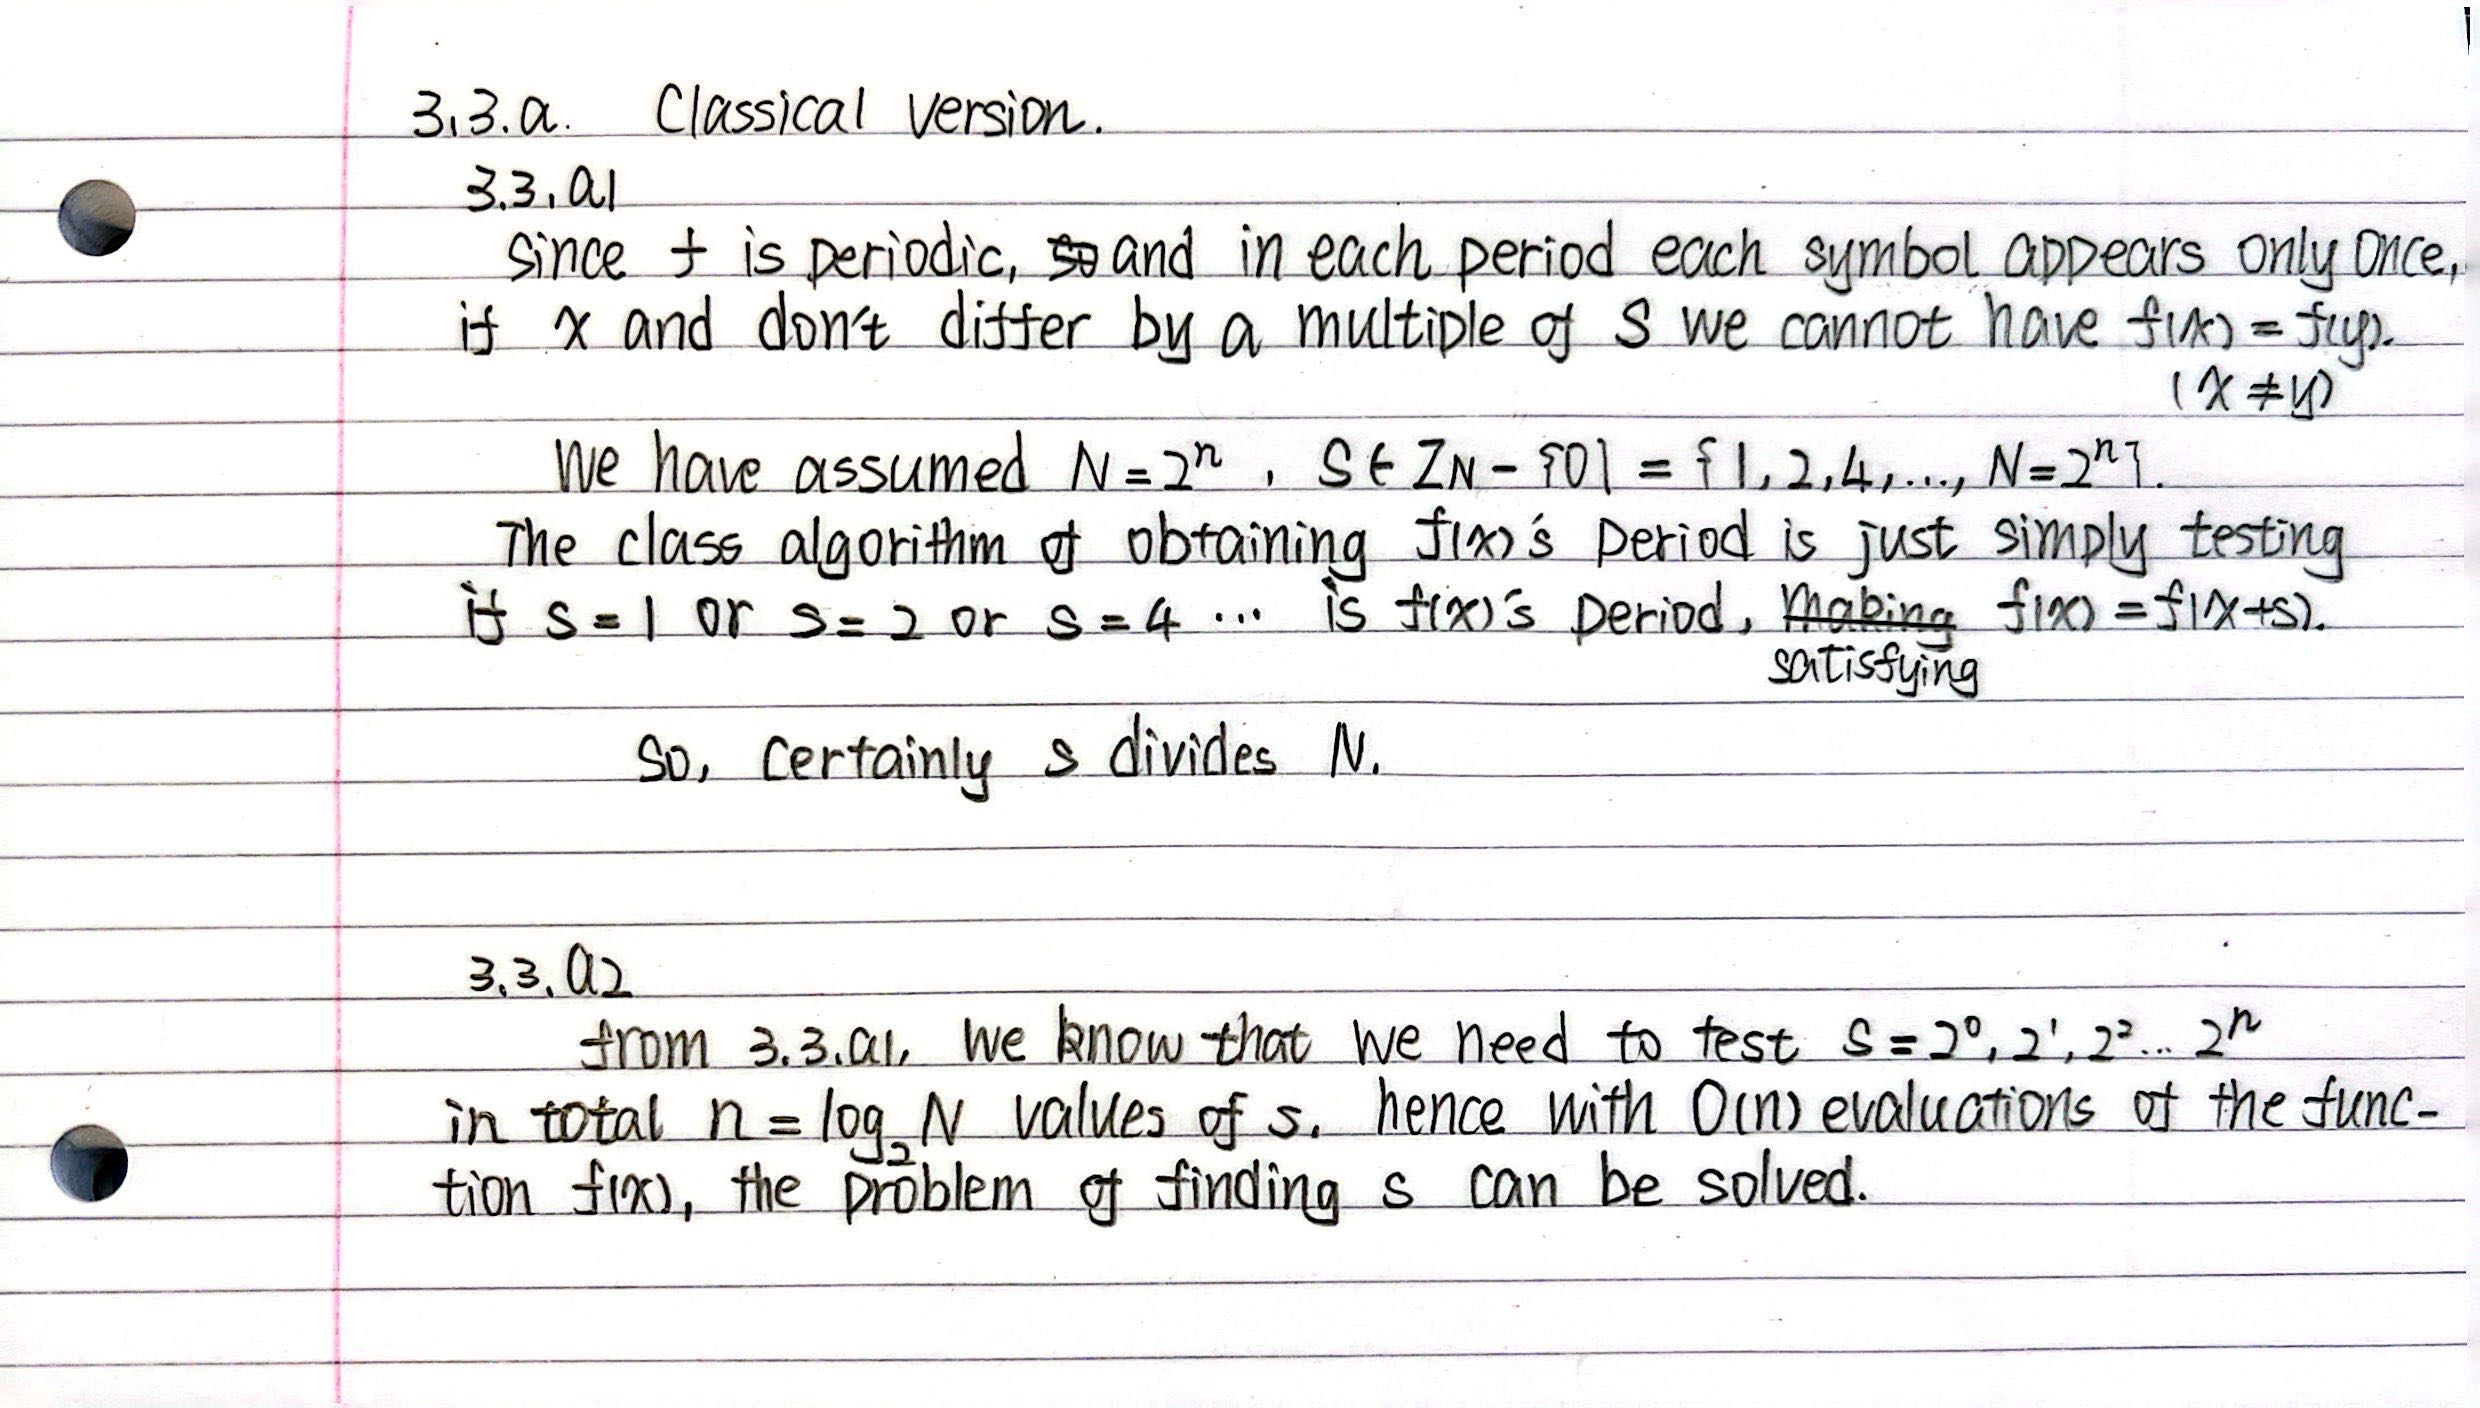 3.3.a. Classical version.
3.3.a1
since f is periodic, so and in each period each symbol appears only once,
if x and don't differ by a multiple of S we cannot have f(x) = f(y).
(x ≠ y)
We have assumed N = 2ⁿ, S ∈ Z_N - {0} = {1, 2, 4, ..., N = 2ⁿ}.
The class algorithm of obtaining f(x)'s period is just simply testing
if s = 1 or s = 2 or s = 4 ... is f(x)'s period, making f(x) = f(x+s).
satisfying
So, certainly s divides N.
3.3.a2
from 3.3.a1, we know that we need to test S = 2⁰, 2¹, 2² ... 2ⁿ
in total n = log₂ N values of s. hence with O(n) evaluations of the func-
tion f(x), the problem of finding s can be solved.